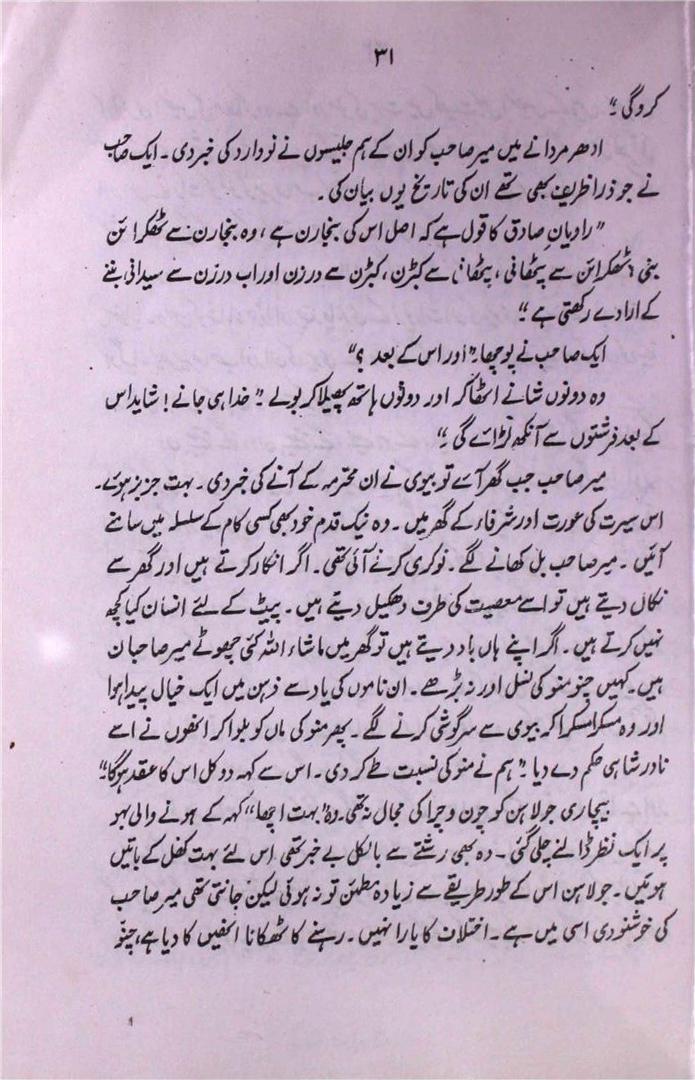 ۳۱
کروگی؟"
ادھر مردانے میں میر صاحب کو ان کے ہم جلیسوں نے نووارد کی خبر دی۔ ایک صاحب
نے جو ذرا ظریف بھی تھے ان کی تاریخ یوں بیان کی۔
"راویانِ صادق کا قول ہے کہ اصل اس کی بنجارن ہے، وہ بنجارن سے ٹھکرائن
بنی، ٹھکرائن سے پٹھانی، پٹھانی سے کبڑن، کبڑن سے درزن اور اب درزن سے سیدانی بننے
کے ارادے رکھتی ہے"
ایک صاحب نے پوچھا۔ "اور اس کے بعد؟"
وہ دونوں شانے اٹھا کر اور دونوں ہاتھ پھیلا کر بولے "خدا ہی جانے! شاید اس
کے بعد فرشتوں سے آنکھ لڑائے گی"
میر صاحب جب گھر آئے تو بیوی نے ان محترمہ کے آنے کی خبر دی۔ بہت جزبز ہوئے۔
اس سیرت کی عورت اور شرفاء کے گھر میں۔ وہ نیک قدم خود بھی کسی کام کے سلسلہ میں سامنے
آئیں۔ میر صاحب بل کھانے لگے۔ نوکری کرنے آئی تھی۔ اگر انکار کرتے ہیں اور گھر سے
نکال دیتے ہیں تو اسے معصیت کی طرف دھکیل دیتے ہیں۔ پیٹ کے لئے انسان کیا کچھ
نہیں کرتے ہیں۔ اگر اپنے ہاں باد دیتے ہیں تو گھر میں ماشاء اللہ کئی چھوٹے میر صاحبان
ہیں۔ کہیں چنو منو کی نسل اور نہ بڑھے۔ ان ناموں کی یاد سے ذہن میں ایک خیال پیدا ہوا
اور وہ مسکرا مسکرا کر بیوی سے سرگوشی کرنے لگے۔ پھر منو کی ماں کو بلوا کر انھوں نے اسے
نادر شاہی حکم دے دیا "ہم نے منو کی نسبت طے کر دی۔ اس سے کہہ دو کل اس کا عقد ہوگا"
بیچاری جولاہن کو چون و چرا کی مجال نہ تھی۔ وہ "بہت اچھا" کہہ کے ہونے والی بہو
پر ایک نظر ڈالنے چلی گئی۔ وہ بھی رشتے سے بالکل بے خبر تھی اس لئے بہت کھل کے باتیں
ہوئیں۔ جولاہن اس کے طور طریقے سے زیادہ مطمئن تو نہ ہوئی لیکن جانتی تھی میر صاحب
کی خوشنودی اسی میں ہے۔ اختلاف کا یارا نہیں۔ رہنے کا ٹھکانا انھیں کا دیا ہے، چنّو